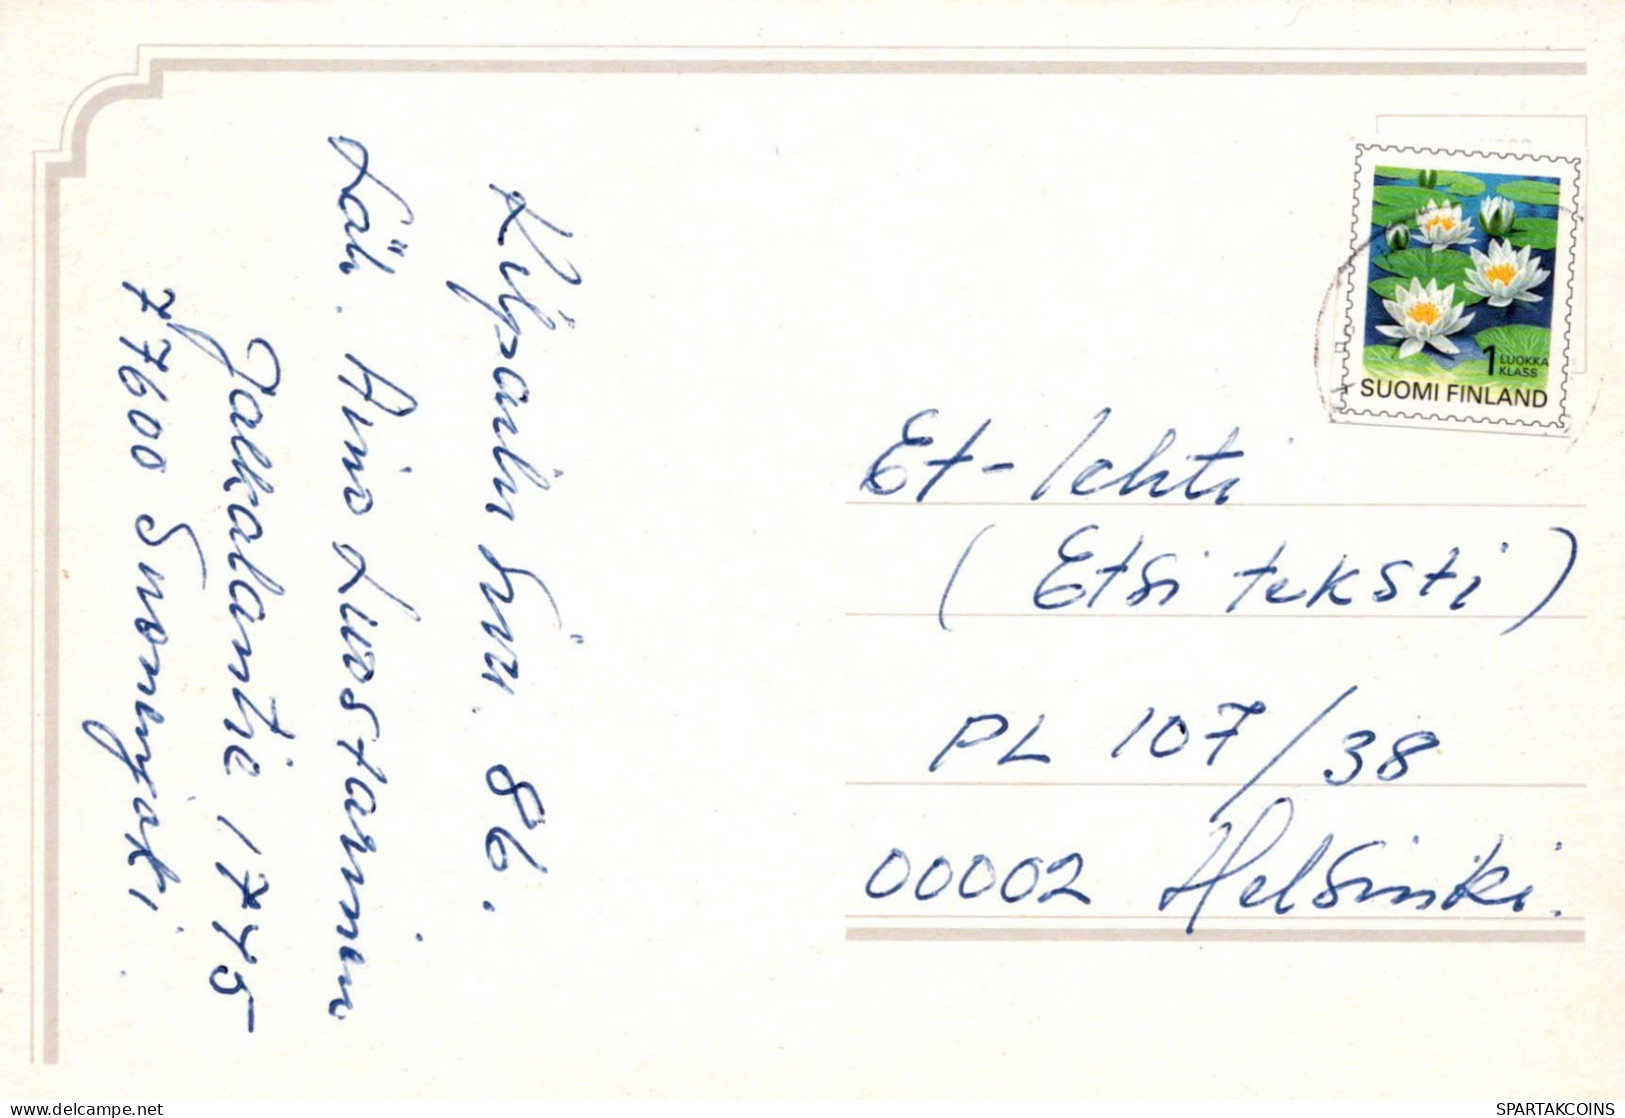 Kilpailu Siv. 86.
Läh. Aino Liuostarinen
Jalkalantie 1745
77600 Suonenjoki.
1 LUOKKA
KLASS
SUOMI FINLAND
Et-lehti
(Etsi teksti)
PL 107/38
00002 Helsinki.
SPARTAKCOINS